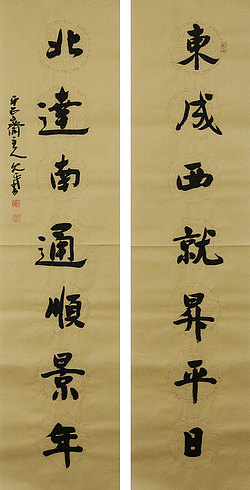 東成西就昇平日
北達南通順景年